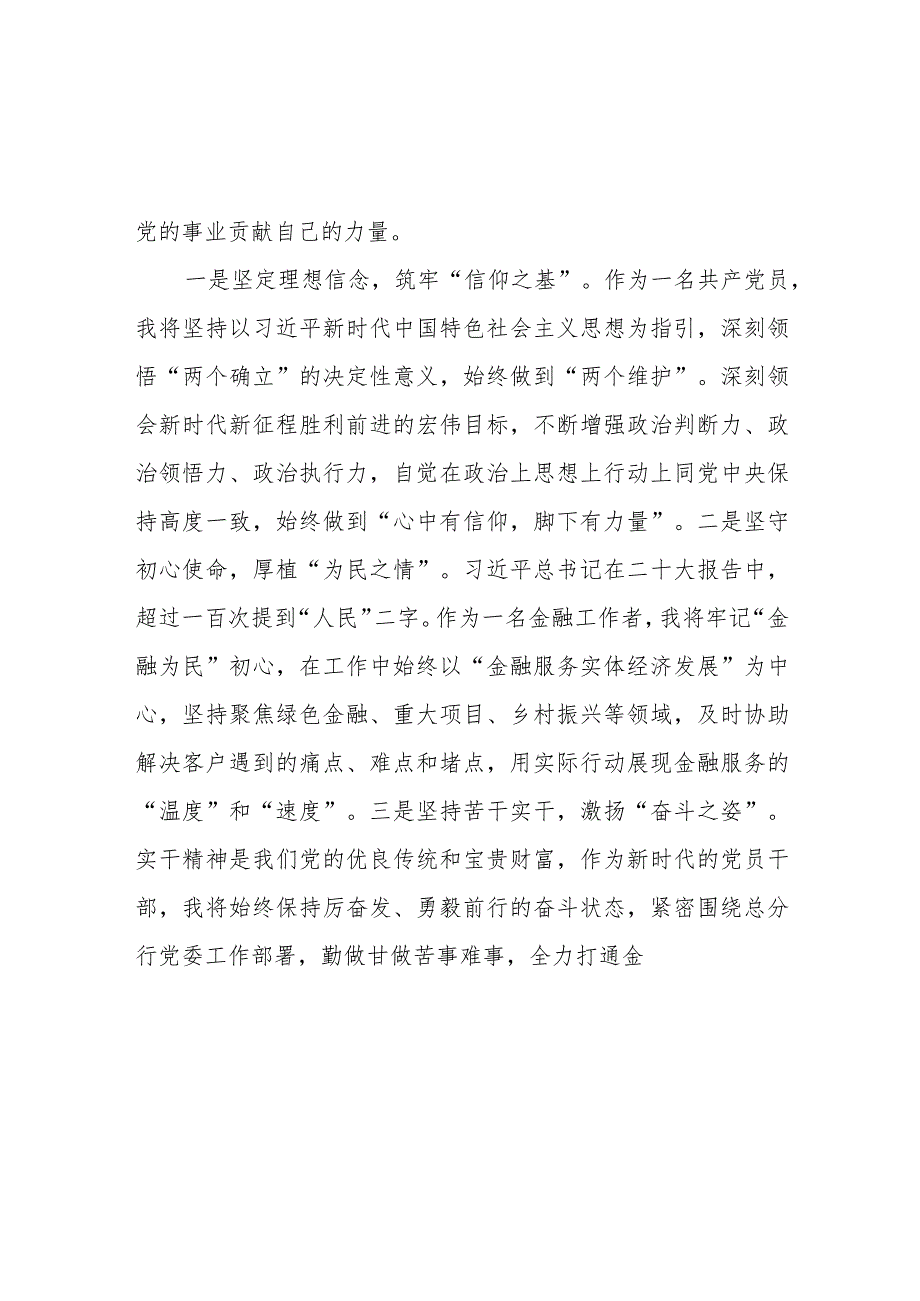 党的事业贡献自己的力量。
一是坚定理想信念，筑牢“信仰之基”。作为一名共产党员，
我将坚持以习近平新时代中国特色社会主义思想为指引，深刻领
悟“两个确立”的决定性意义，始终做到“两个维护”。深刻领
会新时代新征程胜利前进的宏伟目标，不断增强政治判断力、政
治领悟力、政治执行力，自觉在政治上思想上行动上同党中央保
持高度一致，始终做到“心中有信仰，脚下有力量”。二是坚守
初心使命，厚植“为民之情”。习近平总书记在二十大报告中，
超过一百次提到“人民”二字。作为一名金融工作者，我将牢记“金
融为民”初心，在工作中始终以“金融服务实体经济发展”为中
心，坚持聚焦绿色金融、重大项目、乡村振兴等领域，及时协助
解决客户遇到的痛点、难点和堵点，用实际行动展现金融服务的
“温度”和“速度”。三是坚持苦干实干，激扬“奋斗之姿”。
实干精神是我们党的优良传统和宝贵财富，作为新时代的党员干
部，我将始终保持厉奋发、勇毅前行的奋斗状态，紧密围绕总分
行党委工作部署，勤做甘做苦事难事，全力打通金